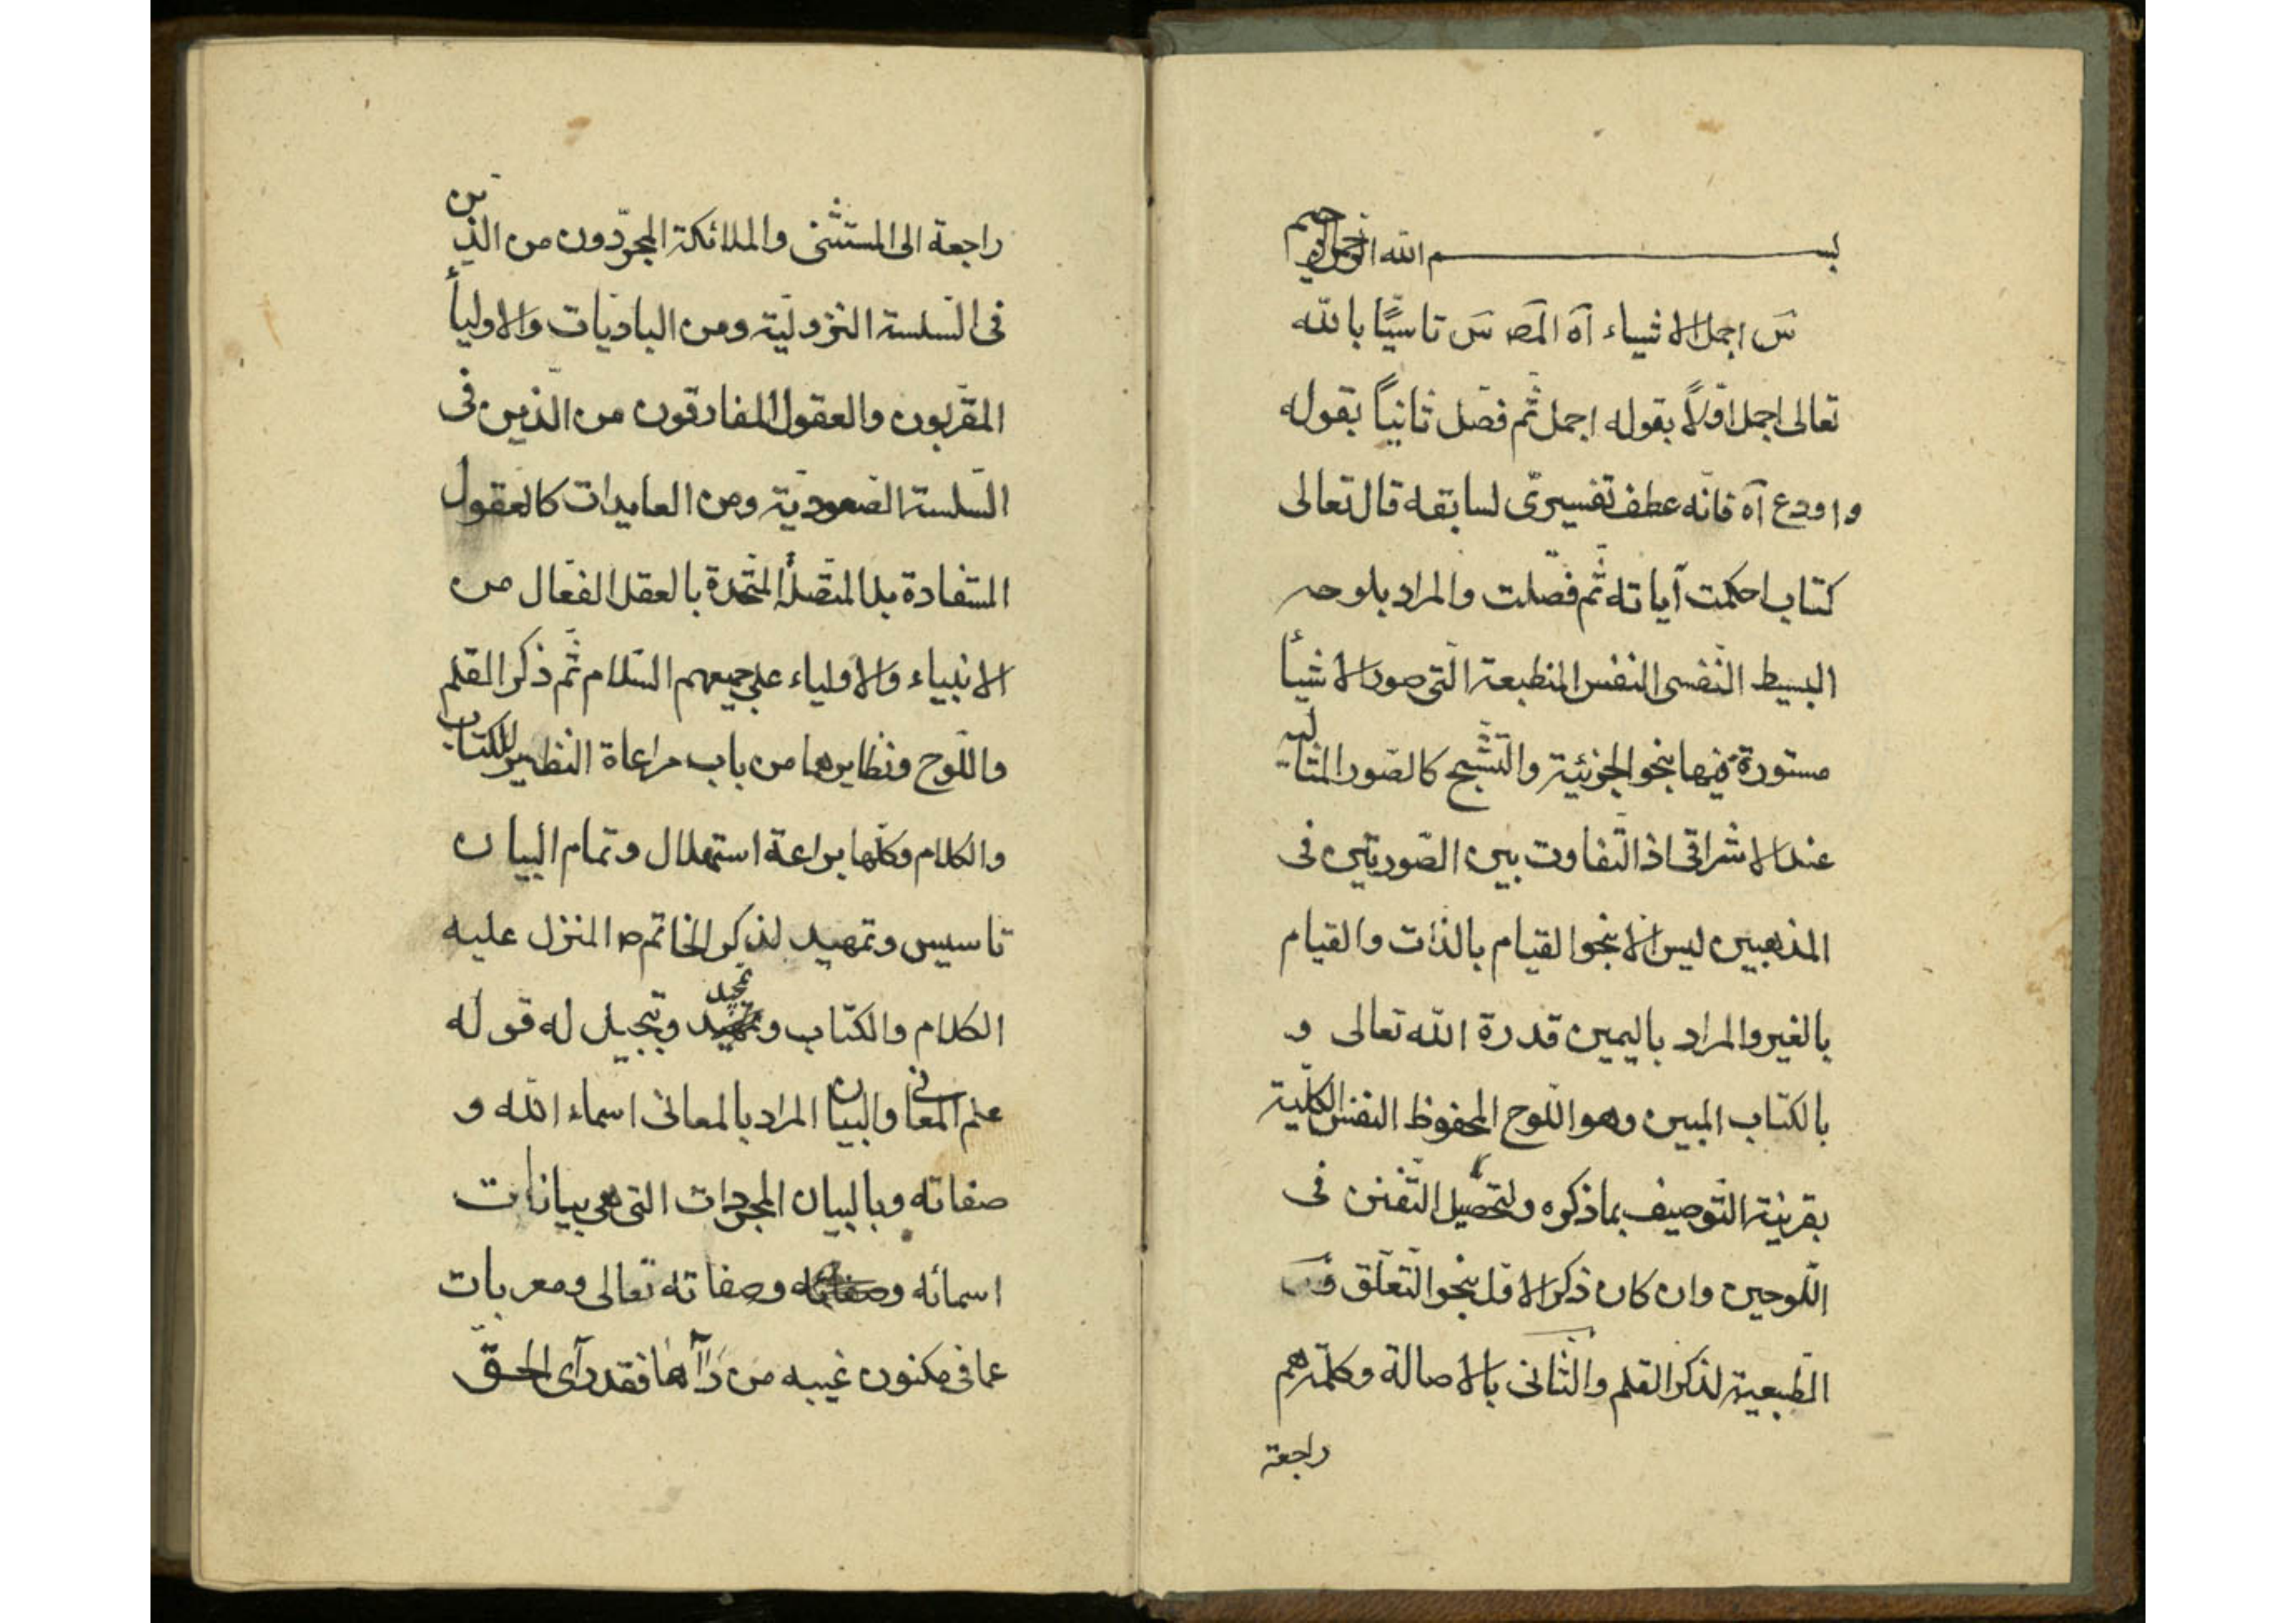 بسم الله الرحمن الرحيم
س اجمل الاشياء آه المص س تاسيًا بالله
تعالى اجمل اولاً بقوله اجمل ثم فصل ثانياً بقوله
واودع آه فانه عطف تفسيرى لسابقه قال تعالى
كتاب احكمت آياته ثم فصلت والمراد بلوحه
البسيط النفسى النفس المنطبعة التى صور الاشيأ
مستورة فيها بنحو الجزئية والتشبح كالصور المثالية
عند الاشراقى اذ التفاوت بين الصورتين فى
المذهبين ليس الا بنحو القيام بالذات والقيام
بالغير والمراد باليمين قدرة الله تعالى و
بالكتاب المبين وهو اللوح المحفوظ النفس الكلية
بقرينة التوصيف بما ذكره ولتحصيل التفنن فى
اللوحين وان كان ذكر الاول بنحو التعلق و
الطبعية لذكر القلم والثانى بالاصالة وكلمة هم
راجعة
راجعة الى المستثنى والملائكة المجردون من الذين
فى السلسة النزولية ومن الباديات والاوليأ
المقربون والعقول المفارقون من الذين فى
السلسة الصعودية ومن العايدات كالعقول
المستفادة بل المتصلة المتحدة بالعقل الفعال من
الانبياء والاولياء على جميعهم السلام ثم ذكر القلم
واللوح ونظايرها من باب مراعاة النظير للكتاب
والكلام وكلها براعة استهلال وتمام البيان
تاسيس وتمهيد لذكر الخاتم ص المنزل عليه
الكلام والكتاب وتمجيد وتبجيل له قوله
علم المعانى والبيان المراد بالمعانى اسماء الله و
صفاته وبالبيان المجردات التى هى بيانات
اسمائه وصفاته وصفاته تعالى ومعربات
عما فى مكنون غيبه من رآها فقد رآى الحق